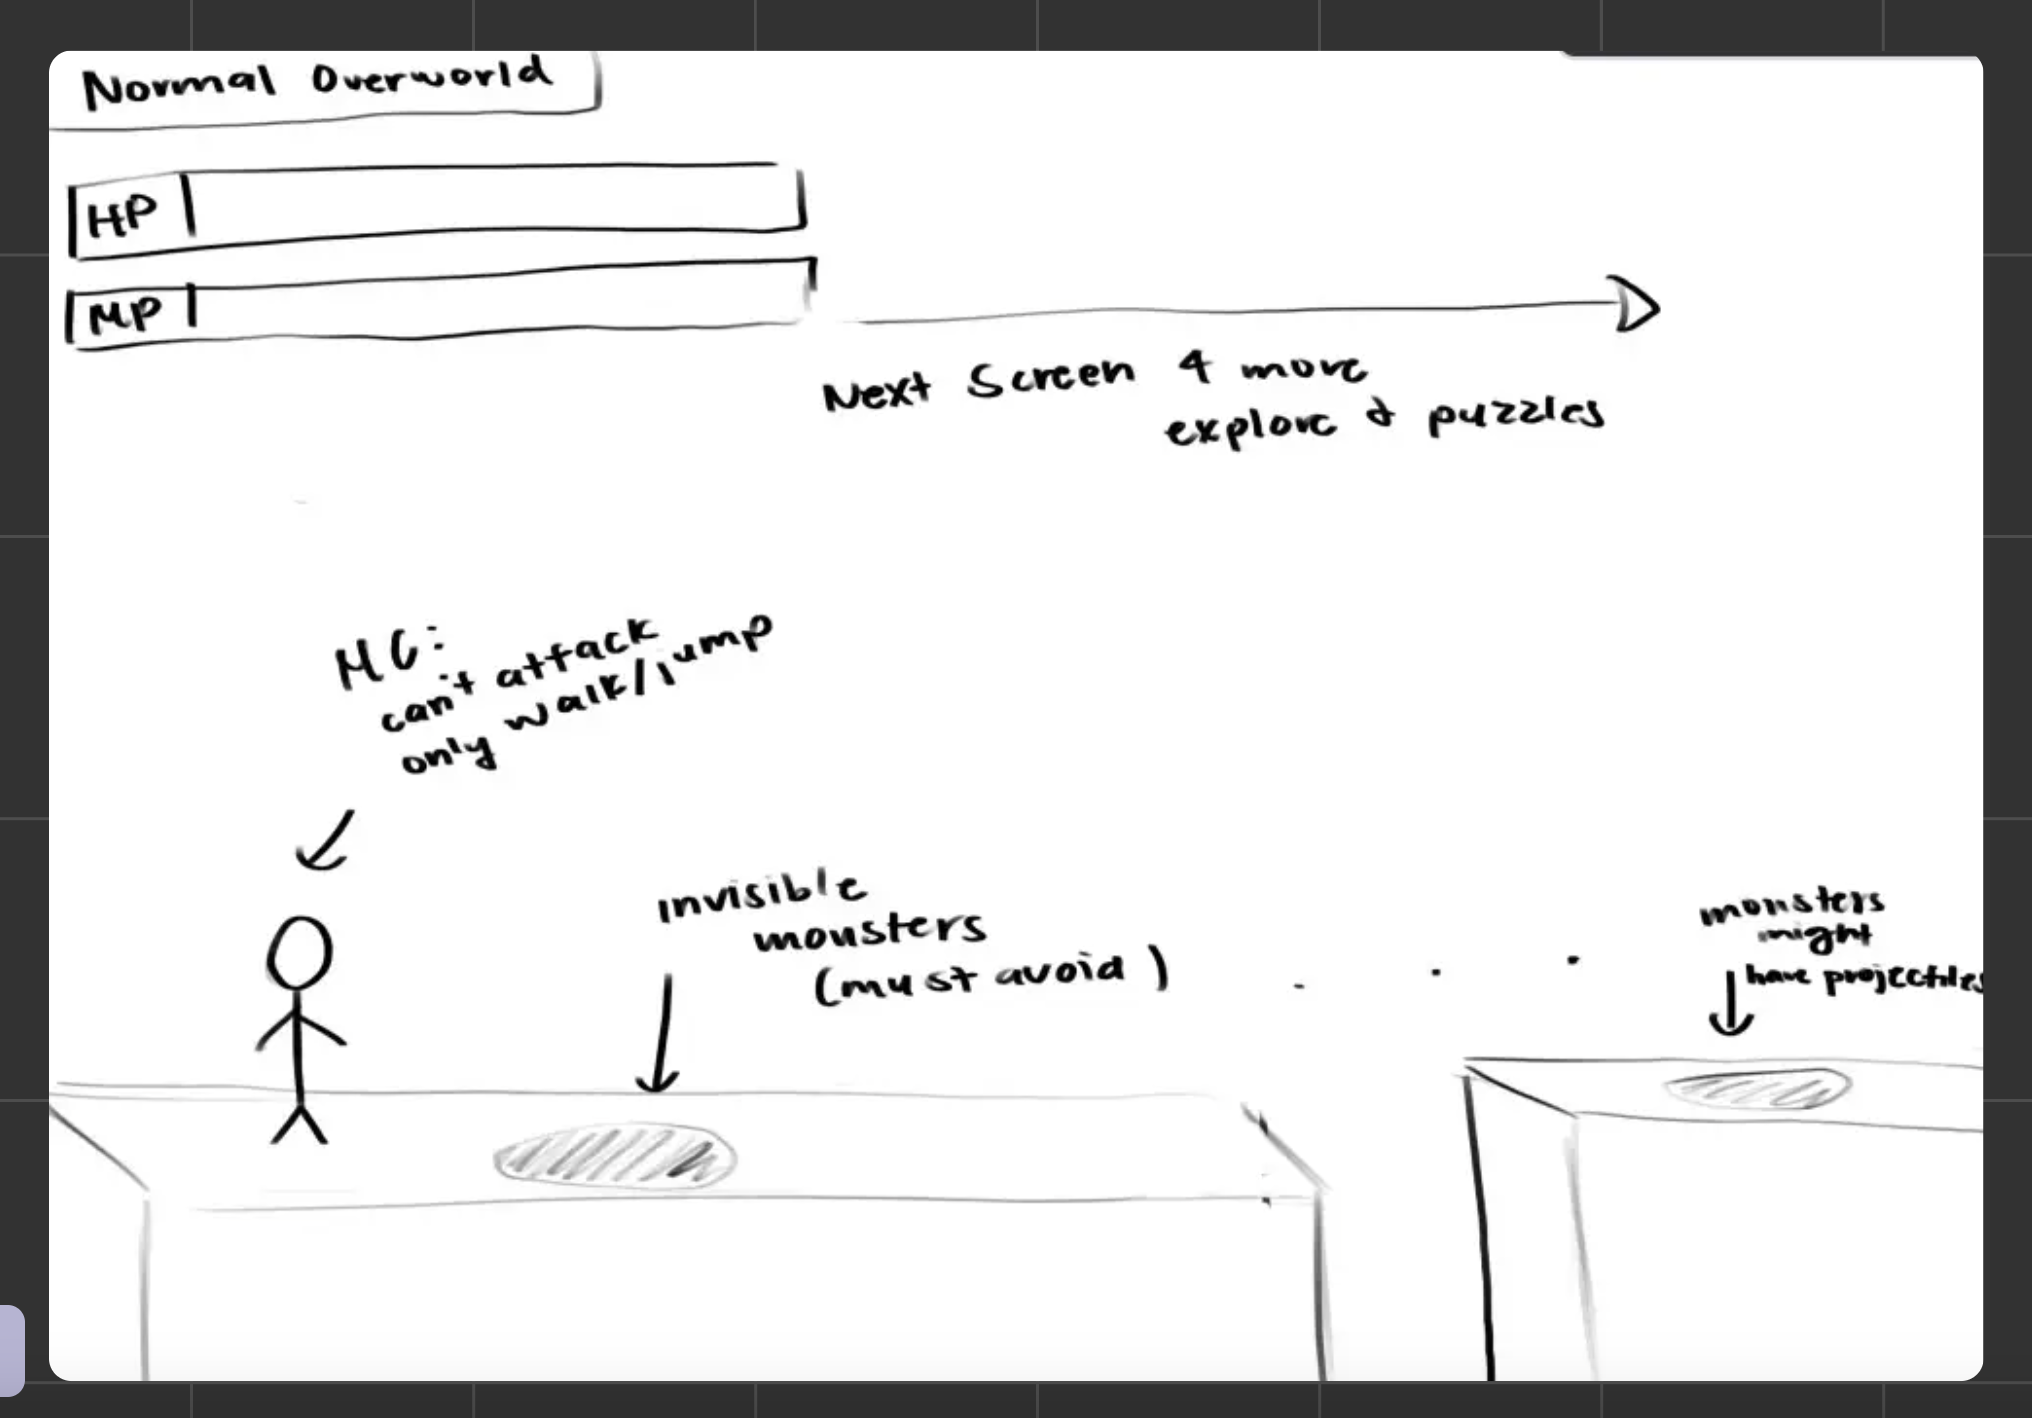 Normal Overworld
HP
MP
Next Screen 4 more
explore & puzzles
MC:
can't attack
only walk/jump
invisible
monsters
(must avoid)
monsters
might
have projectiles